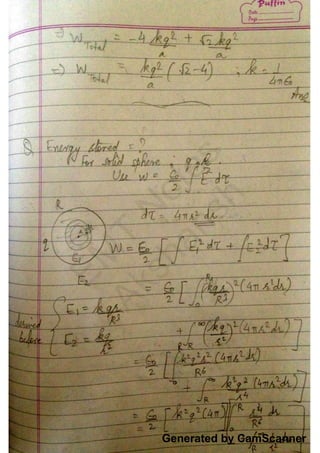 Puffin
Date
Page
=) W Total = -4 kq² / a + √2 kq² / a
=) W Total = kq² / a (√2 - 4) ; k = 1 / 4πε₀
Ans
Q Energy stored = ?
For solid sphere ; q, R.
Use W = ε₀/2 ∫ E² dτ
dτ = 4πr² dr
R
q
E₁
E₂
W = ε₀/2 [ ∫ E₁² dτ + ∫ E₂² dτ ]
= ε₀/2 [ ∫₀ᴿ (kqr/R³)² (4πr²dr)
derived before { E₁ = kqr/R³
E₂ = kq/r²
+ ∫ᴿ^∞ (kq/r²)² (4πr²dr) ]
= ε₀/2 [ ∫ k²q²r²/R⁶ (4πr²dr)
+ ∫ᴿ^∞ k²q²/r⁴ (4πr²dr) ]
= ε₀/2 [ k²q²(4π) [ ∫₀ᴿ r⁴/R⁶ dr
Generated by GamScanner